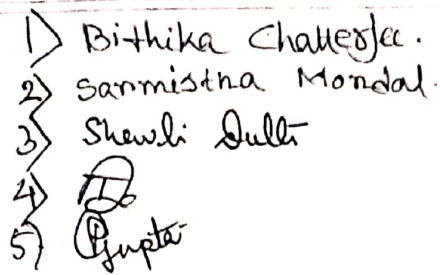 1) Bithika Chatterjee.
2) Sanmistha Mondal.
3) Shewli Dutta
4)
5) PGupta